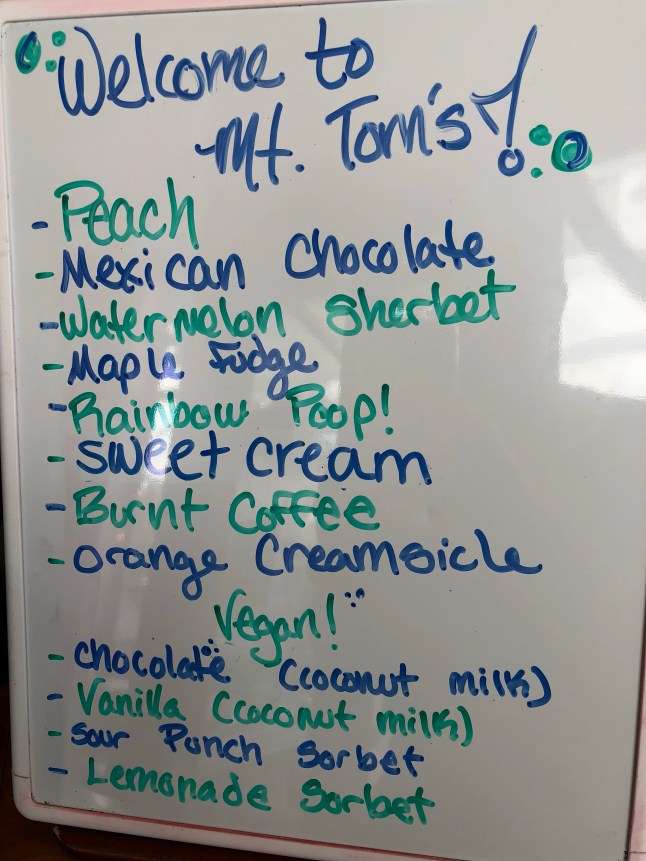 Welcome to
Mt. Tom's!
- Peach
- Mexican Chocolate
- Watermelon Sherbet
- Maple Fudge
- Rainbow Poop!
- Sweet Cream
- Burnt Coffee
- Orange Creamsicle
Vegan!
- Chocolate (coconut milk)
- Vanilla (coconut milk)
- Sour Punch Sorbet
- Lemonade Sorbet